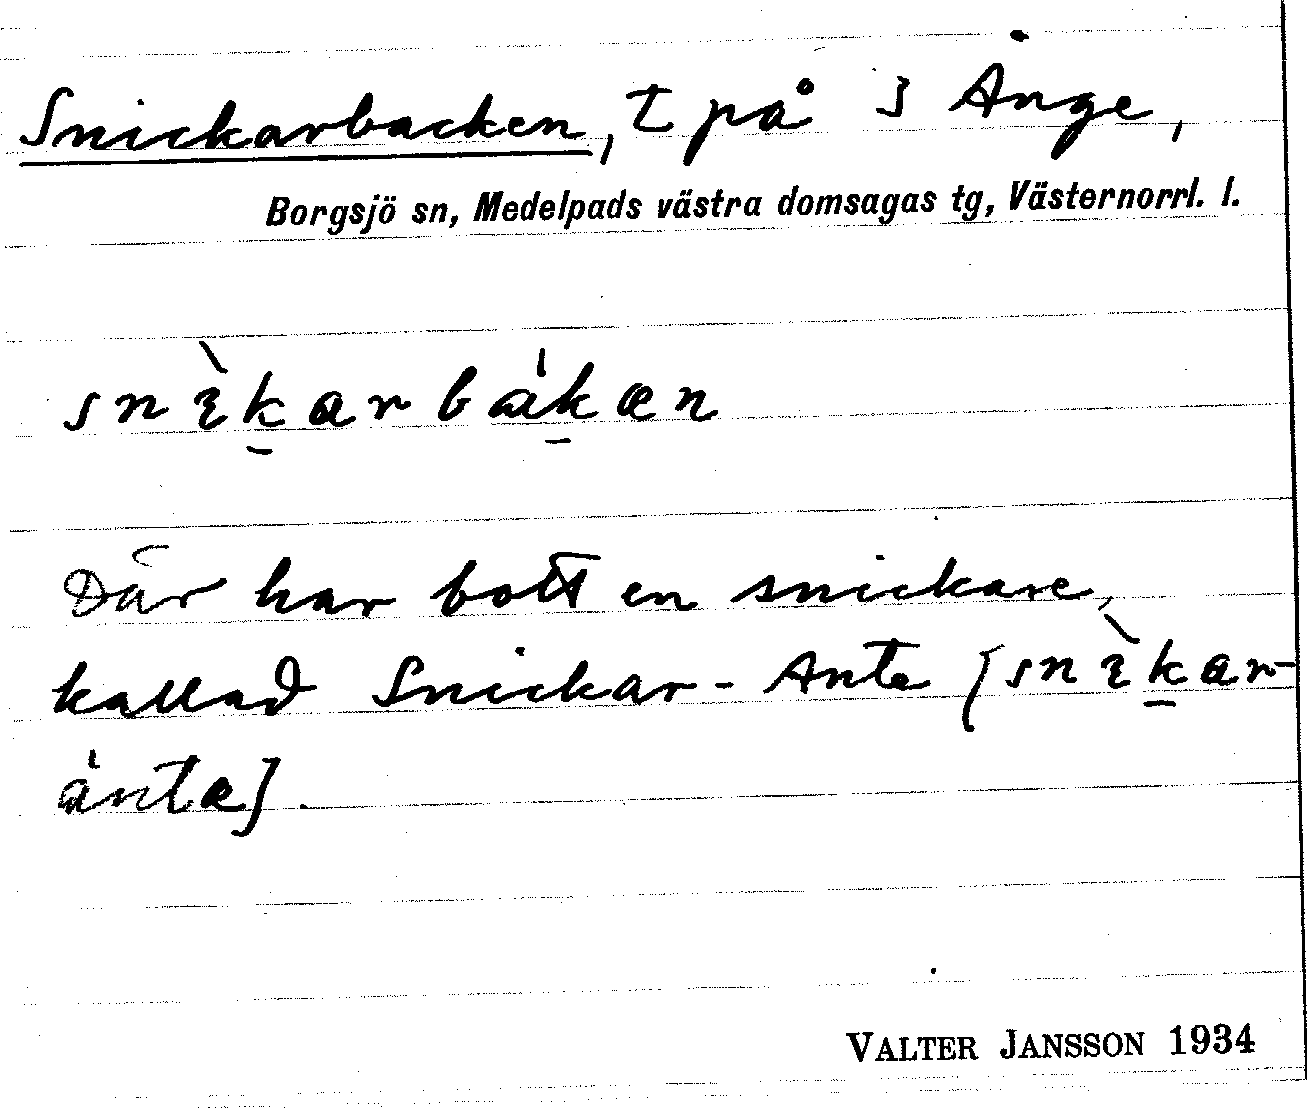 Snickarbacken, t på 3 Ånge,
Borgsjö sn, Medelpads västra domsagas tg, Västernorrl. l.
snὶk̲arbák̲æn
Där har bott en snickare,
kallad Snickar-Ante [snὶk̲ar-
ántæ].
VALTER JANSSON 1934